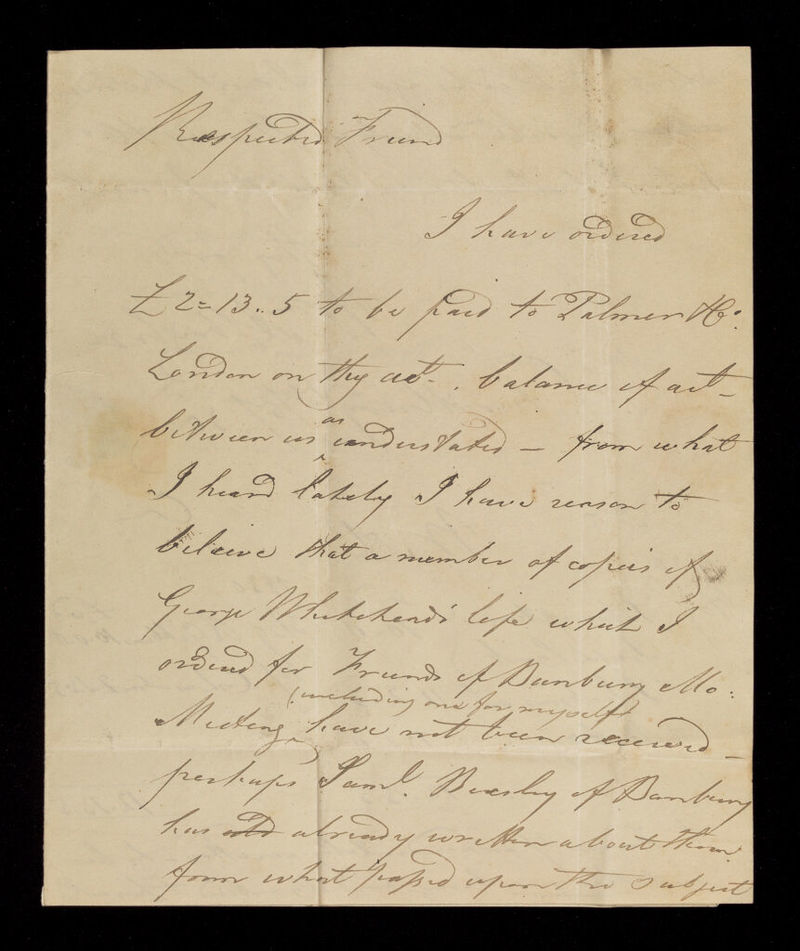 Respected Friend
I have ordered
£2=13..5 to be paid to Palmer & Co.
London on thy act. balance of act -
between us as understated - from what
I heard lately I have reason to
believe that a number of copies of
George Whitehead's life which I
ordered for Friends of Banbury Mo:
(including one for myself)
Meeting have not been received -
perhaps Saml. Beesley of Banbury
has already written about them.
from what passed upon the subject